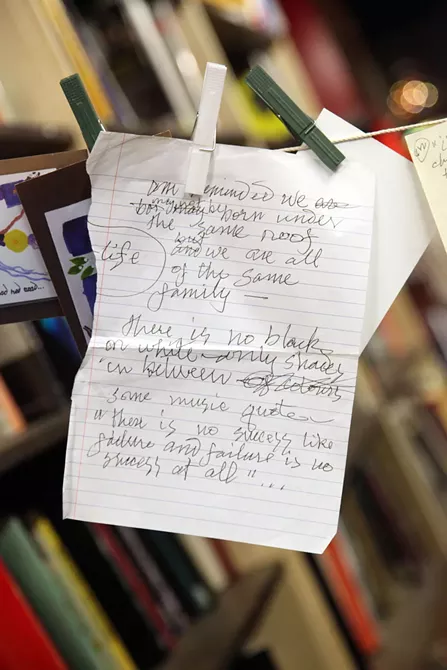 am reminded we are
born under
the same roof
and we are all
life
of the same
family —
there is no black
or white - only shades
in between
some music quote
"there is no success like
failure and failure is no
success at all"...